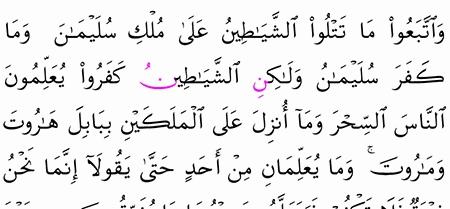 وَٱتَّبَعُوا۟ مَا تَتْلُوا۟ ٱلشَّيَـٰطِينُ عَلَىٰ مُلْكِ سُلَيْمَـٰنَ وَمَا
كَفَرَ سُلَيْمَـٰنُ وَلَـٰكِنِ ٱلشَّيَـٰطِينُ كَفَرُوا۟ يُعَلِّمُونَ
ٱلنَّاسَ ٱلسِّحْرَ وَمَآ أُنزِلَ عَلَى ٱلْمَلَكَيْنِ بِبَابِلَ هَـٰرُوتَ
وَمَـٰرُوتَ ۚ وَمَا يُعَلِّمَانِ مِنْ أَحَدٍ حَتَّىٰ يَقُولَآ إِنَّمَا نَحْنُ